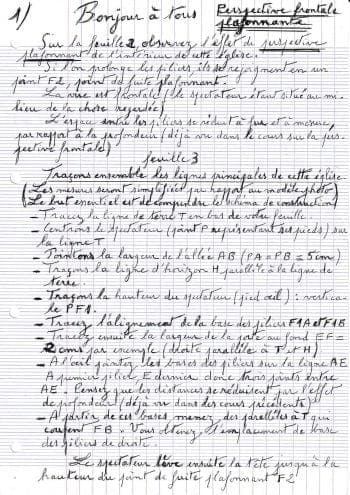 1/ Bonjour à tous Perspective frontale
plafonnante
Sur la feuille 2, observez l'effet de perspective
plafonnant de l'intérieur de cette église.
Si l'on prolonge les piliers, ils se rejoignent en un
point F2, point de fuite plafonnant.
La vue est frontale (le spectateur étant situé au mi-
lieu de la chose regardée)
L'espace entre les piliers se réduit à fur et à mesure
par rapport à la profondeur (déjà vu dans le cours sur la pers-
pective frontale)
feuille 3
Traçons ensemble les lignes principales de cette église
(Les mesures seront simplifiées par rapport au modèle photo)
(Le but essentiel est de comprendre le schéma de construction)
- Tracez la ligne de terre T en bas de votre feuille.
- Centrons le spectateur (point P représentant ses pieds) sur
la ligne T.
- Pointons la largeur de l'allée AB (PA = PB = 5cm)
- Traçons la ligne d'horizon H parallèle à la ligne de
terre.
- Traçons la hauteur du spectateur (pied œil) : vertica-
le PF1.
- Tracez l'alignement de la base des piliers F1A et F1B
- Tracez ensuite la largeur de la porte au fond EF =
2cms par exemple (droite parallèle à T et H)
- A l'œil pointez les bases des piliers sur la ligne AE
A premier pilier, E dernier donc trois points entre
AE. Pensez que les distances se réduisent par l'effet
de profondeur (déjà vu dans les cours précédents)
- A partir de ces bases menez des parallèles à T qui
coupent FB. Vous obtenez l'emplacement de base
des piliers de droite.
Le spectateur lève ensuite la tête jusqu'à la
hauteur du point de fuite plafonnant F2